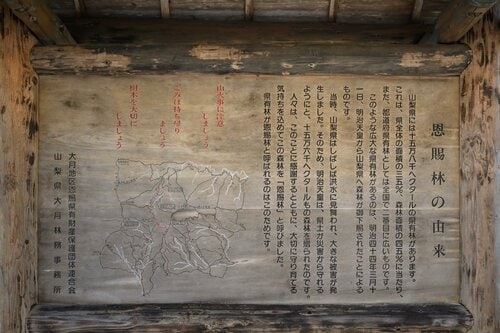 恩賜林の由来
山梨県には十五万八千ヘクタールの県有林があります。
これは、県全体の面積の三五%、森林面積の四五%に当たり、
また、都道府県有林としては全国で二番目に広いものです。
このような広大な県有林があるのは、明治四十四年三月十
一日、明治天皇から山梨県へ森林が御下賜されたことによる
ものです。
当時、山梨県はしばしば洪水に見舞われ、大きな被害が発
生しました。そのため、明治天皇は、県土が災害から守れる
ようにと、十五万六千ヘクタールもの森林を贈られたのです。
人々は、このことに感謝するとともに、大切に守り育てる
気持ちを込めてこの森林を「恩賜林」と呼びました。
県有林が恩賜林と呼ばれるのはこのためです。
山火事に注意
しましょう
ごみは持ち帰り
ましょう
樹木を大切に
しましょう
大月地区恩賜県有財産保護団体連合会
山梨県大月林務事務所